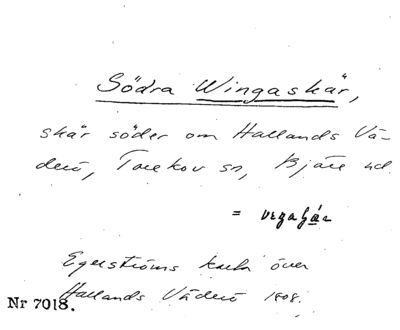 Södra Wingaskär,
skär söder om Hallands Vä-
derö, Torekov sn, Bjäre hd.
=
Egerströms karta över
Hallands Väderö 1808.
Nr 7018.